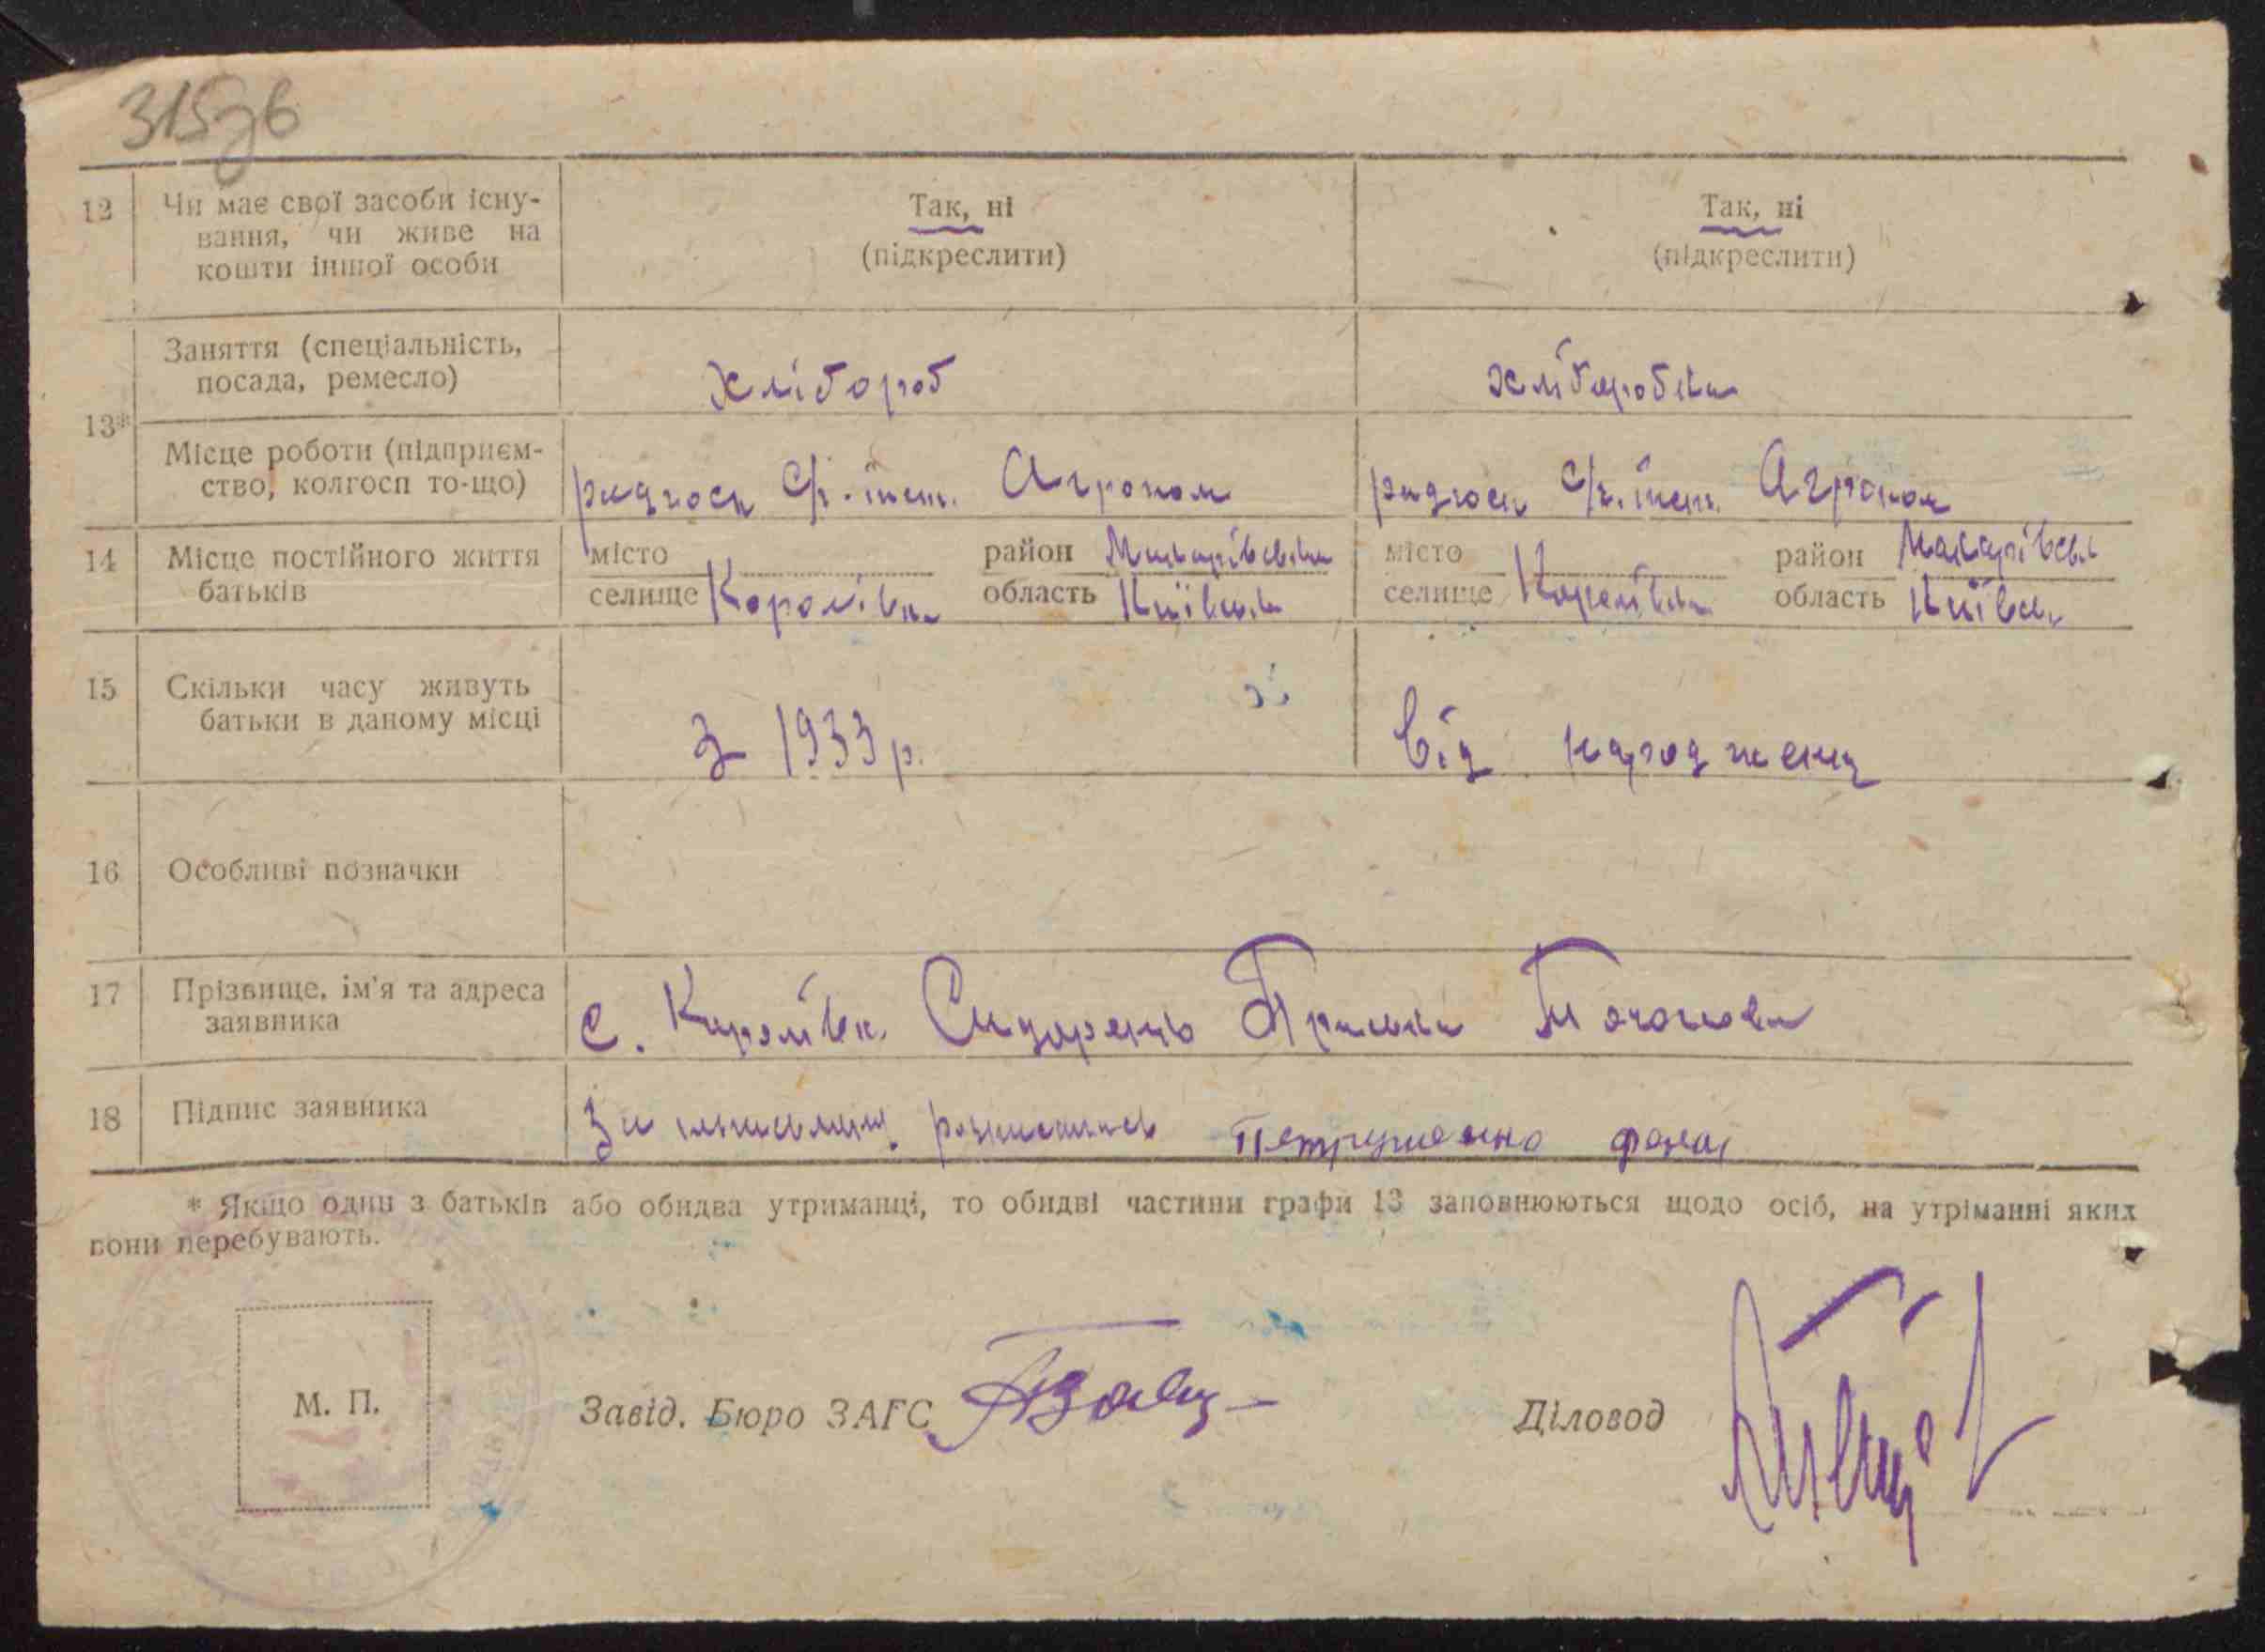 315зв
12 Чи має свої засоби існу-
вання, чи живе на
кошти іншої особи
Так, ні
(підкреслити)
Так, ні
(підкреслити)
13*
Заняття (спеціальність,
посада, ремесло)
Хлібороб
Хліборобка
Місце роботи (підприєм-
ство, колгосп то-що)
радгосп С/г. інст. Агроном
радгосп С/г. інст. Агроном
14 Місце постійного життя
батьків
місто
селище Королівка
район Макарівська
область Київська
місто
селище Королівка
район Макарівськ
область Київськ
15 Скільки часу живуть
батьки в даному місці
З 1933 р.
Від народження
16 Особливі позначки
17 Прізвище, ім'я та адреса
заявника
с. Королівка. Сидоренко
18 Підпис заявника
За розписалась Петрушенко
* Якщо один з батьків або обидва утриманці, то обидві частини графи 13 заповнюються щодо осіб, на утріманні яких
вони перебувають.
М. П.
Завід. Бюро ЗАГС
Діловод